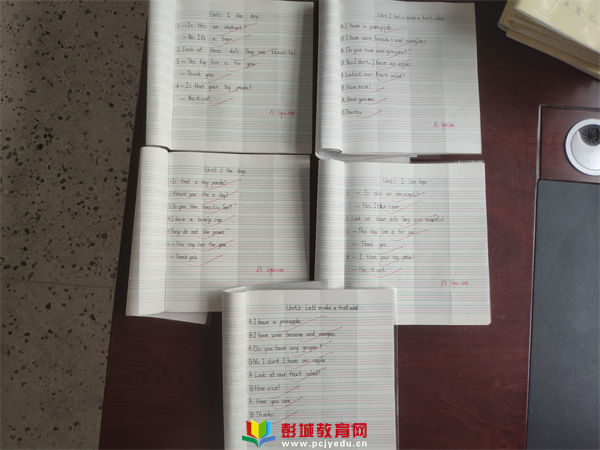 Unit1 I like dogs
1. — Is this an elephant?
— No. It's a tiger.
2. Look at those dolls. They are beautiful.
3. — This toy lion is for you.
— Thank you.
4. — Is that your toy panda?
— No, it isn't.
Unit 2 Let's make a fruit salad
A: I have a pineapple.
B: I have some bananas and mangoes.
A: Do you have any grapes?
B: No, I don't. I have an apple.
A: Look at our fruit salad!
B: How nice!
A: Here you are.
B: Thanks.
Unit1 I like dogs
1. Is that a toy panda?
2. Would you like a dog?
3. Do you like
4. I have a lovely
5. They do not like
6. — This toy lion is for you.
— Thank you.
Unit1 I like dogs
1. — Is this an elephant?
— No. It's a tiger.
2. Look at those dolls. They are beautiful.
3. — This toy lion is for you.
— Thank you.
4. — Is that your toy panda?
— No, it isn't.
Unit2 Let's make a fruit salad
A: I have a pineapple.
B: I have some bananas and mangoes.
A: Do you have any grapes?
B: No, I don't. I have an apple.
A: Look at our fruit salad!
B: How nice!
A: Here you are.
B: Thanks.
彭城教育网
www.pcjyedu.cn